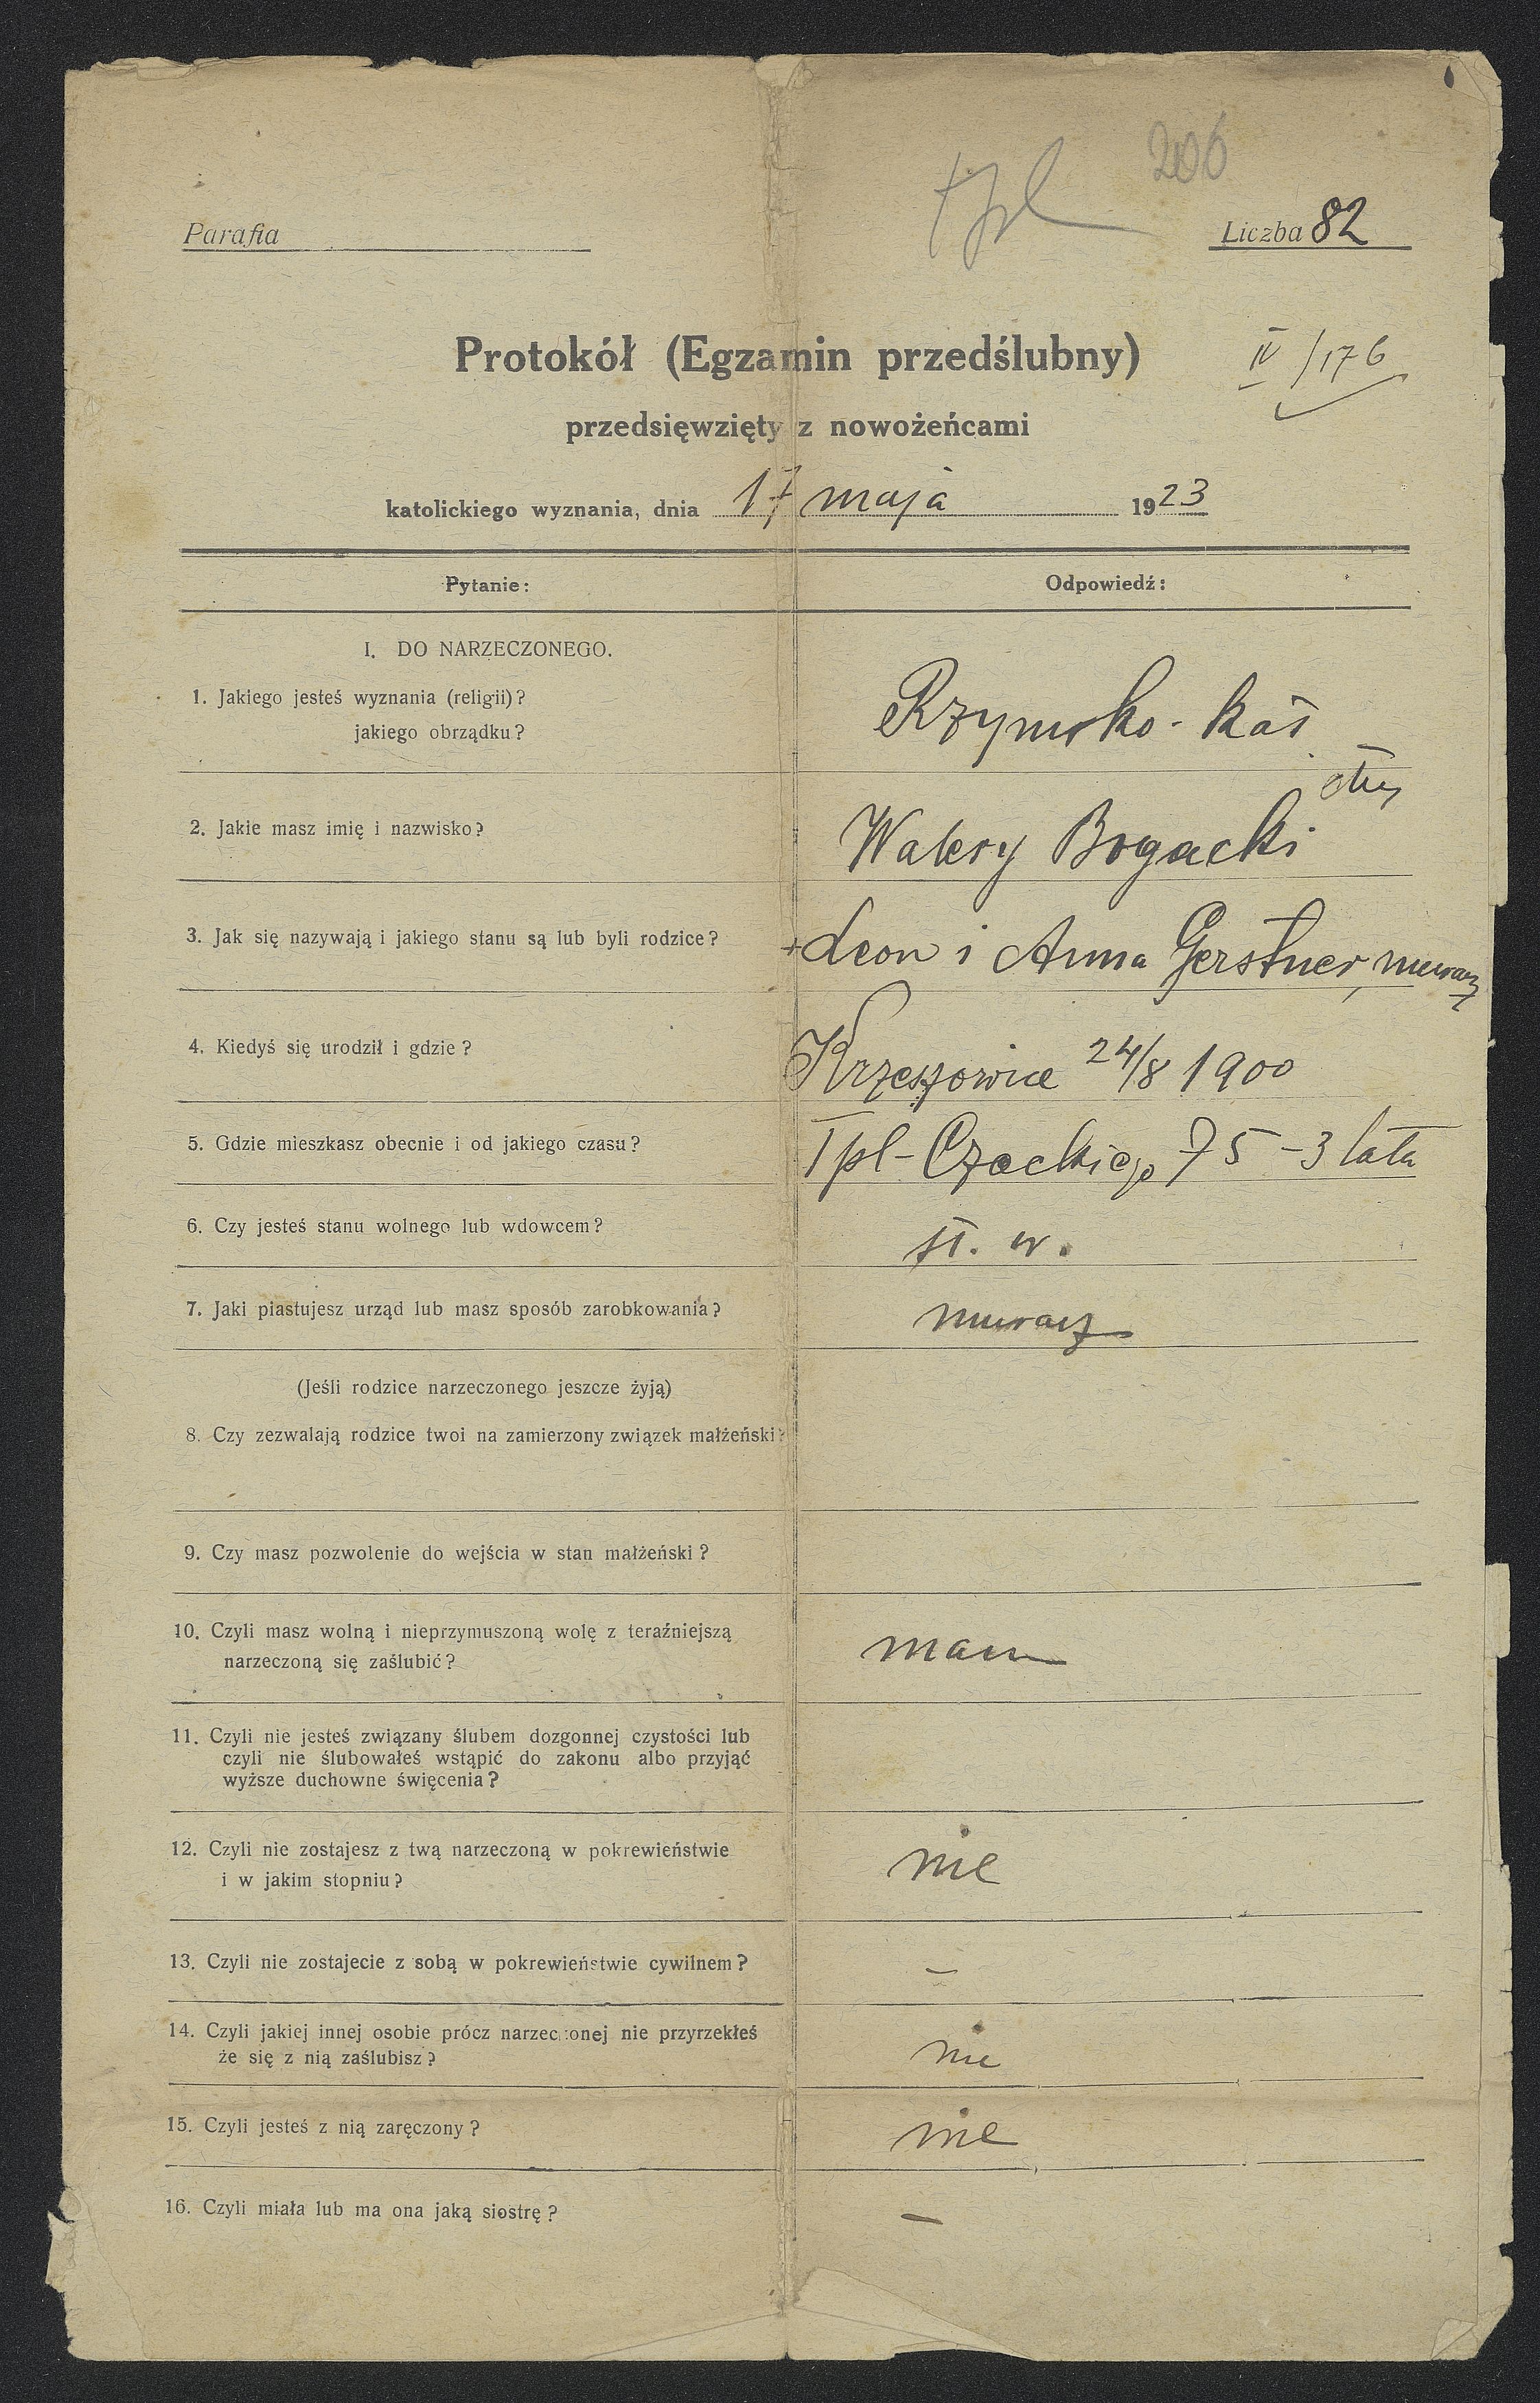 206
Tpl
Parafia
Liczba 82
Protokół (Egzamin przedślubny)
IV/176
przedsięwzięty z nowożeńcami
katolickiego wyznania, dnia 17 maja 1923
Pytanie: Odpowiedź:
I. DO NARZECZONEGO.
1. Jakiego jesteś wyznania (religii)?
jakiego obrządku?
Rzymsko-kat
2. Jakie masz imię i nazwisko? Walery Bogacki
3. Jak się nazywają i jakiego stanu są lub byli rodzice? +Leon i Anna Gerstner, murarz
4. Kiedyś się urodził i gdzie? Krzeszowice 24/8 1900
5. Gdzie mieszkasz obecnie i od jakiego czasu? Tpl-Czackiego 75 – 3 lata
6. Czy jesteś stanu wolnego lub wdowcem? st. w.
7. Jaki piastujesz urząd lub masz sposób zarobkowania? murarz
(Jeśli rodzice narzeczonego jeszcze żyją)
8. Czy zezwalają rodzice twoi na zamierzony związek małżeński?
9. Czy masz pozwolenie do wejścia w stan małżeński?
10. Czyli masz wolną i nieprzymuszoną wolę z teraźniejszą
narzeczoną się zaślubić? mam
11. Czyli nie jesteś związany ślubem dozgonnej czystości lub
czyli nie ślubowałeś wstąpić do zakonu albo przyjąć
wyższe duchowne święcenia?
12. Czyli nie zostajesz z twą narzeczoną w pokrewieństwie
i w jakim stopniu? nie
13. Czyli nie zostajecie z sobą w pokrewieństwie cywilnem? –
14. Czyli jakiej innej osobie prócz narzeczonej nie przyrzekłeś
że się z nią zaślubisz? nie
15. Czyli jesteś z nią zaręczony? nie
16. Czyli miała lub ma ona jaką siostrę? –